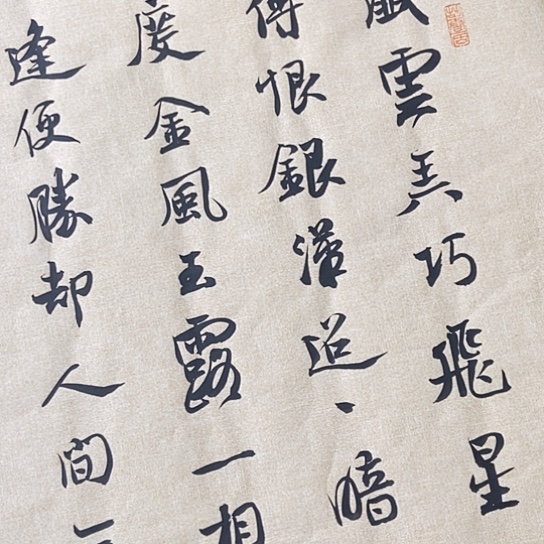 雲弄巧飛星
傳恨銀漢迢丶暗
度金風玉露一相
逢便勝却人間